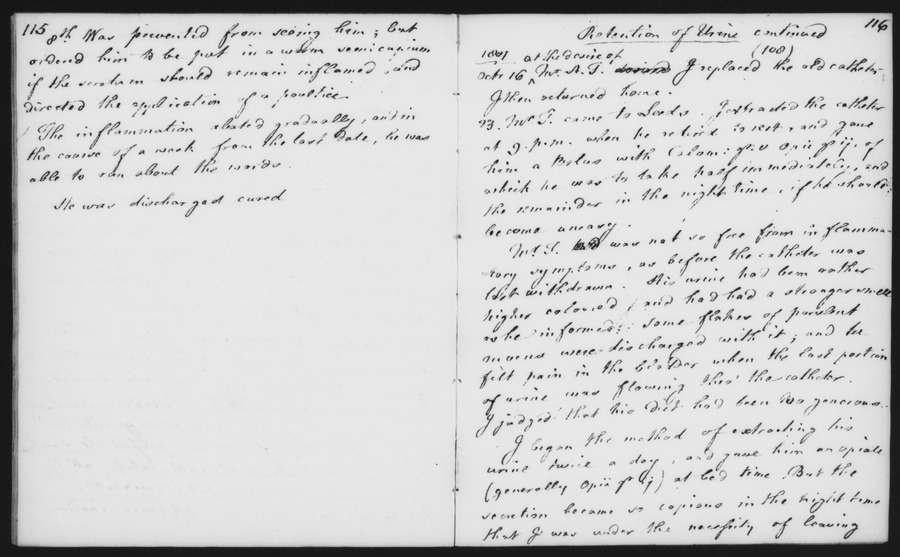 115
8th Was prevented from seeing him; but
ordered him to be put in a warm semicupium
if the scrotum should remain inflamed, and
directed the application of a poultice.
The inflammation abated gradually, and in
the course of a week from the last date, he was
able to run about the wards.
He was discharged cured
116
Retention of Urine continued
(108)
at the desire of
Octr 16 Mr. A. T. I replaced the old catheter
I then returned home.
23. Mr. T. came to Leeds. I extracted the catheter
at 9. p.m. when he retired to rest, and gave
him a Bolus with Calom: gr.v Opii gr ij. of
which he was to take half immediately, and
the remainder in the night time, if he should
become uneasy.
Mr. T. was not so free from inflamma-
tory symptoms, as before the catheter was
last withdrawn. His urine had been rather
higher colored, and had had a stronger smell
as he informed: some flakes of purulent
mucus were discharged with it; and he
felt pain in the bladder when the last portion
of urine was flowing thro' the catheter.
I judged that his diet had been too generous.
I began the method of extracting his
urine twice a day, and gave him an opiate
(generally Opii gr ij) at bed time. But the
secretion became so copious in the night time
that I was under the necessity of leaving